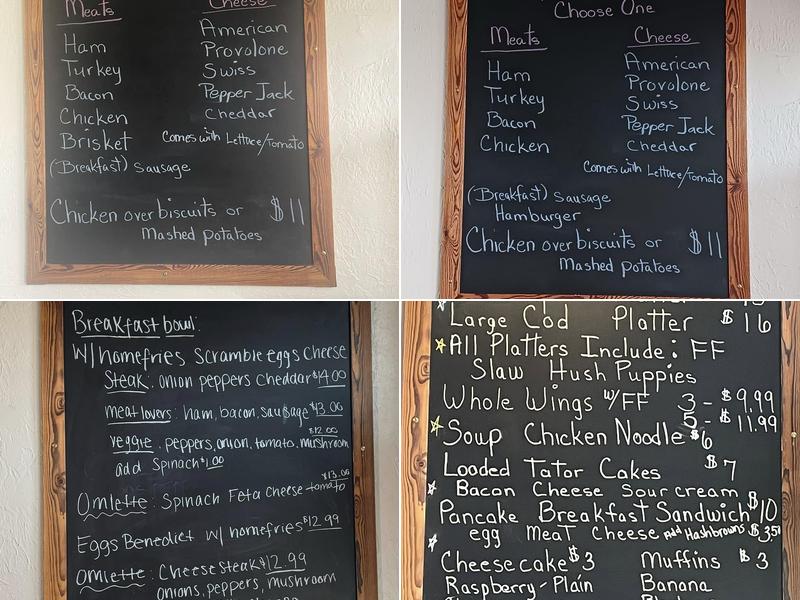 Meats Cheese
Ham American
Turkey Provolone
Bacon Swiss
Chicken Pepper Jack
Brisket Cheddar
Comes with Lettuce/Tomato
(Breakfast) Sausage
Chicken over biscuits or $11
Mashed potatoes
Choose One
Meats Cheese
Ham American
Turkey Provolone
Bacon Swiss
Chicken Pepper Jack
Cheddar
Comes with Lettuce/Tomato
(Breakfast) Sausage
Hamburger
Chicken over biscuits or $11
Mashed potatoes
Breakfast bowl:
W/homefries Scramble eggs Cheese
Steak: onion peppers cheddar $14.00
meat lovers: ham, bacon, sausage $13.00
veggie: peppers, onion, tomato, mushroom $12.00
add Spinach $1.00
Omlette: Spinach Feta cheese tomato $13.00
Eggs Benedict w/ homefries $12.99
Omlette: Cheese Steak $12.99
onions, peppers, mushroom
Large Cod Platter $16
All Platters Include: FF
Slaw Hush Puppies
Whole Wings w/FF 3 - $9.99
5 - $11.99
Soup Chicken Noodle $6
Looded Tator Cakes $7
Bacon Cheese Sour cream
Pancake Breakfast Sandwich $10
egg meat cheese Add Hashbrowns $3.50
Cheesecake $3 Muffins $3
Raspberry - Plain Banana